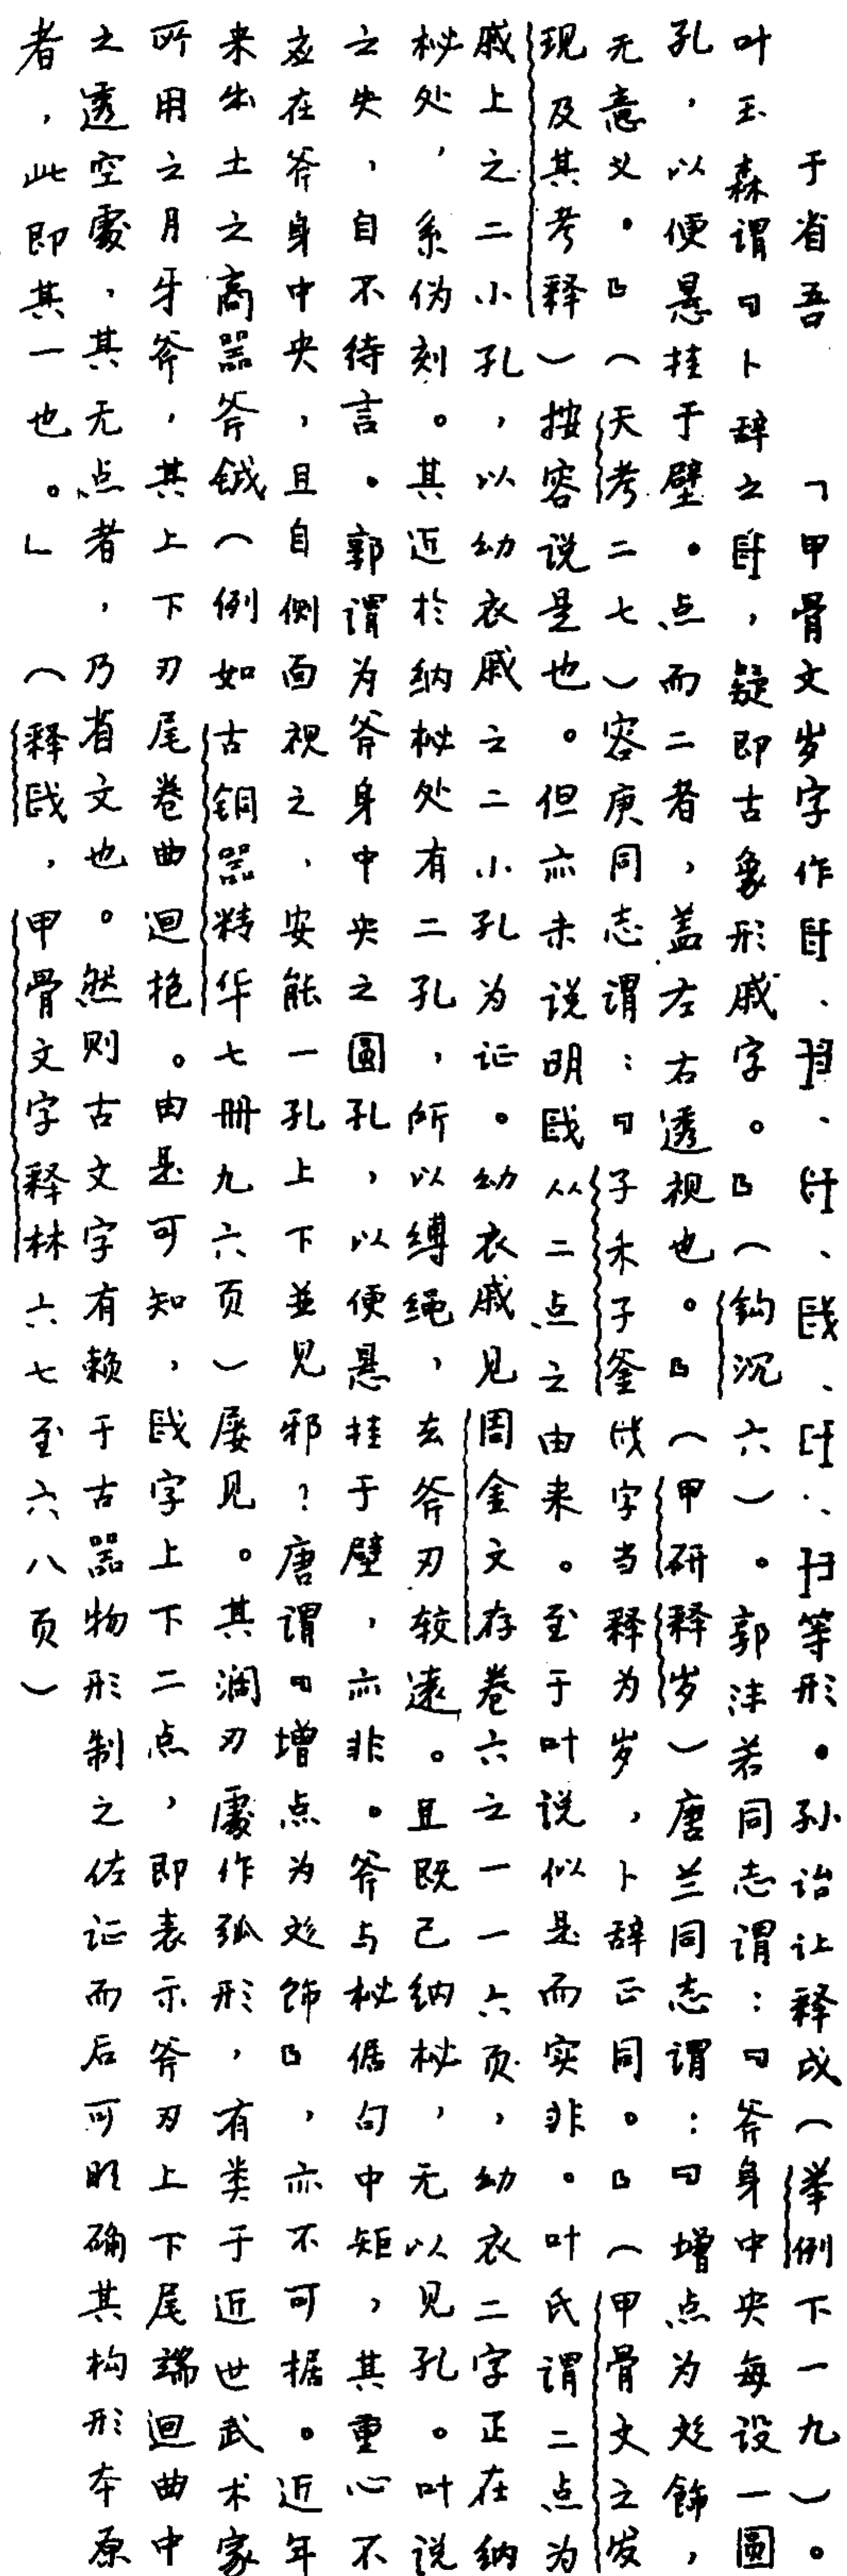 于省吾　「甲骨文岁字作、、、、、等形。孙诒让释戉（举例下一九）。
叶玉森谓『卜辞之，疑即古象形戚字。』（钩沉六）。郭沫若同志谓：『斧身中央每设一圆
孔，以便悬挂于壁。点而二者，盖左右透视也。』（甲研释岁）唐兰同志谓：『增点为彣饰，
无意义。』（天考二七）容庚同志谓：『子禾子釜字当释为岁，卜辞正同。』（甲骨文之发
现及其考释）按容说是也。但亦未说明从二点之由来。至于叶说似是而实非。叶氏谓二点为
戚上之二小孔，以幼衣戚之二小孔为证。幼衣戚见周金文存卷六之一一六页，幼衣二字正在纳
柲处，系伪刻。其近於纳柲处有二孔，所以缚绳，去斧刃较遠。且既已纳柲，无以见孔。叶说
之失，自不待言。郭谓为斧身中央之圆孔，以便悬挂于壁，亦非。斧与柲倨句中矩，其重心不
应在斧身中央，且自侧面视之，安能一孔上下並见邪？唐谓『增点为彣饰』，亦不可据。近年
来出土之商器斧钺（例如古铜器精华七册九六页）屡见。其阔刃處作弧形，有类于近世武术家
所用之月牙斧，其上下刃尾卷曲迴抱。由是可知，字上下二点，即表示斧刃上下尾端迴曲中
之透空處，其无点者，乃省文也。然则古文字有赖于古器物形制之佐证而后可明确其构形本原
者，此即其一也。」（释，甲骨文字释林六七至六八页）